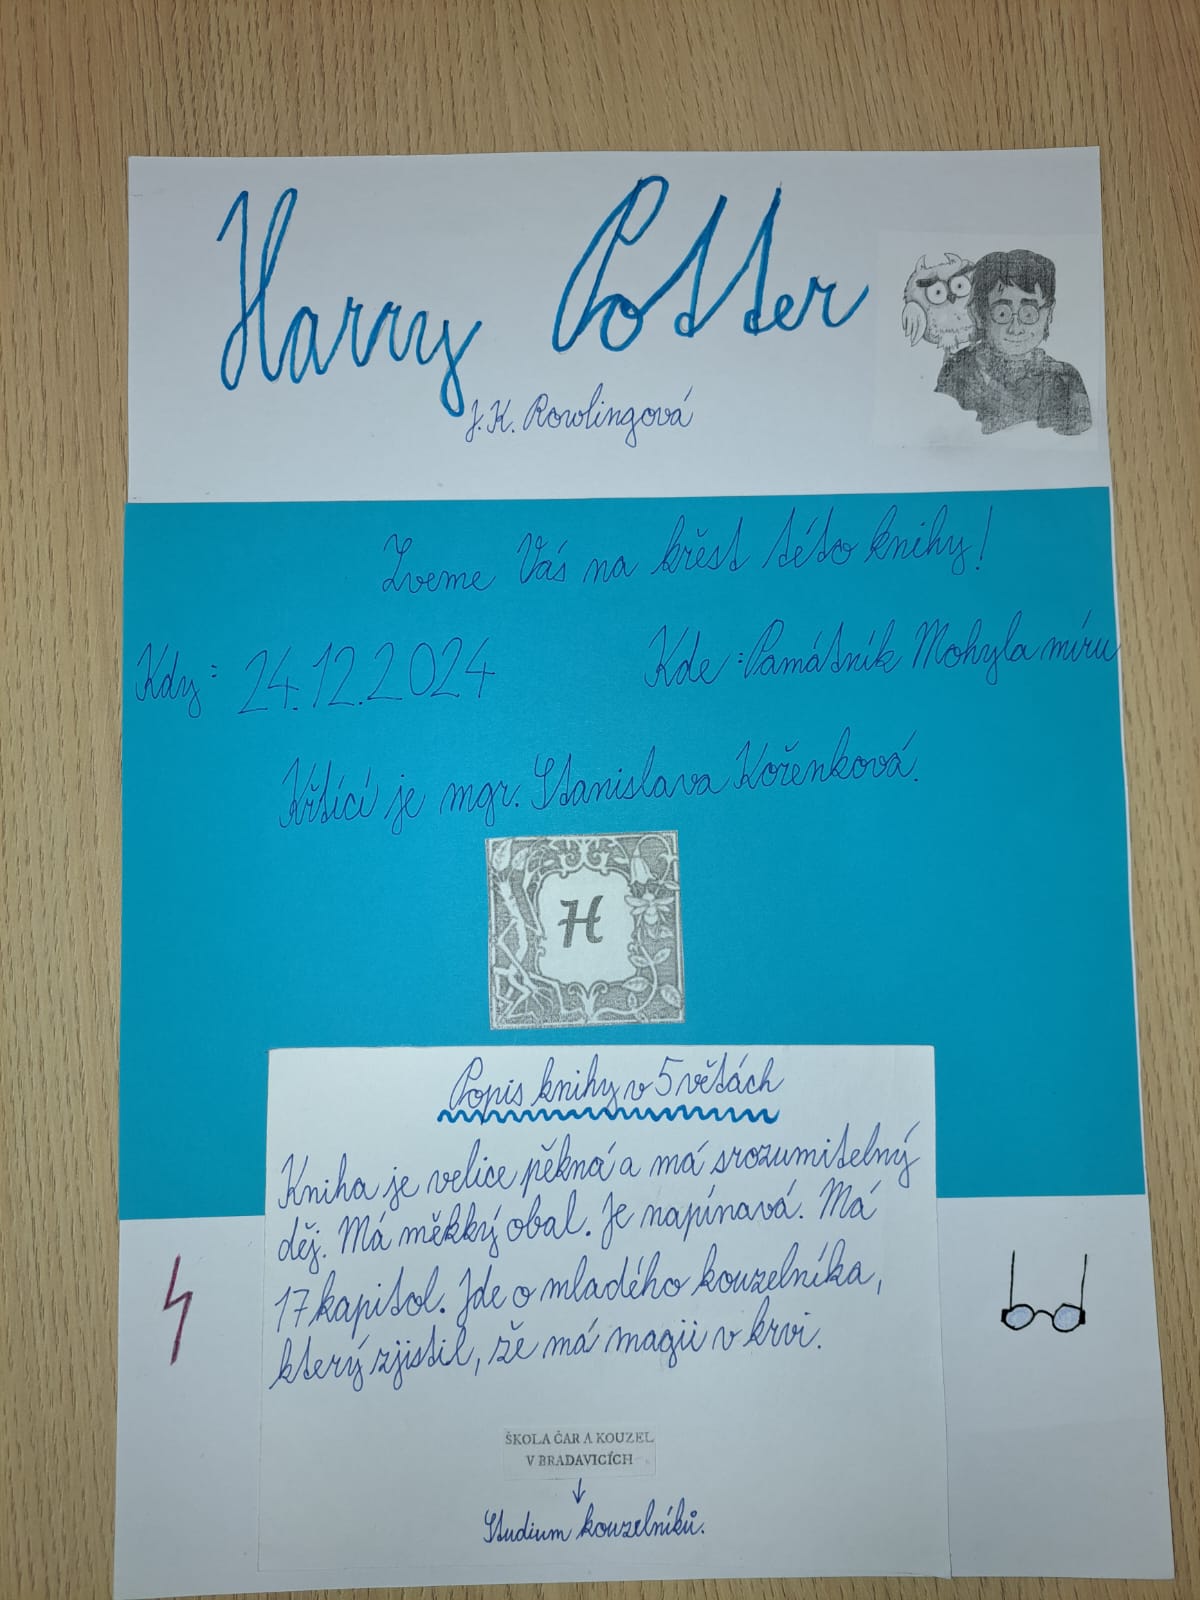 Harry Potter
J. K. Rowlingová
Zveme Vás na křest této knihy!
Kdy: 24.12.2024 Kde: Památník Mohyla míru
Křtící je mgr. Stanislava Kořenková.
H
Popis knihy v 5 větách
Kniha je velice pěkná a má srozumitelný
děj. Má měkký obal. Je napínavá. Má
17 kapitol. Jde o mladého kouzelníka,
který zjistil, že má magii v krvi.
ŠKOLA ČAR A KOUZEL
V BRADAVICÍCH
↓
Studium kouzelníků.